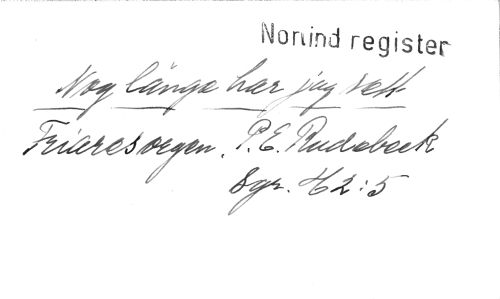 Norlind register
Nog länge har jag sett
Friaresorgen. P. E. Rudebeck
Sgr. H2:5